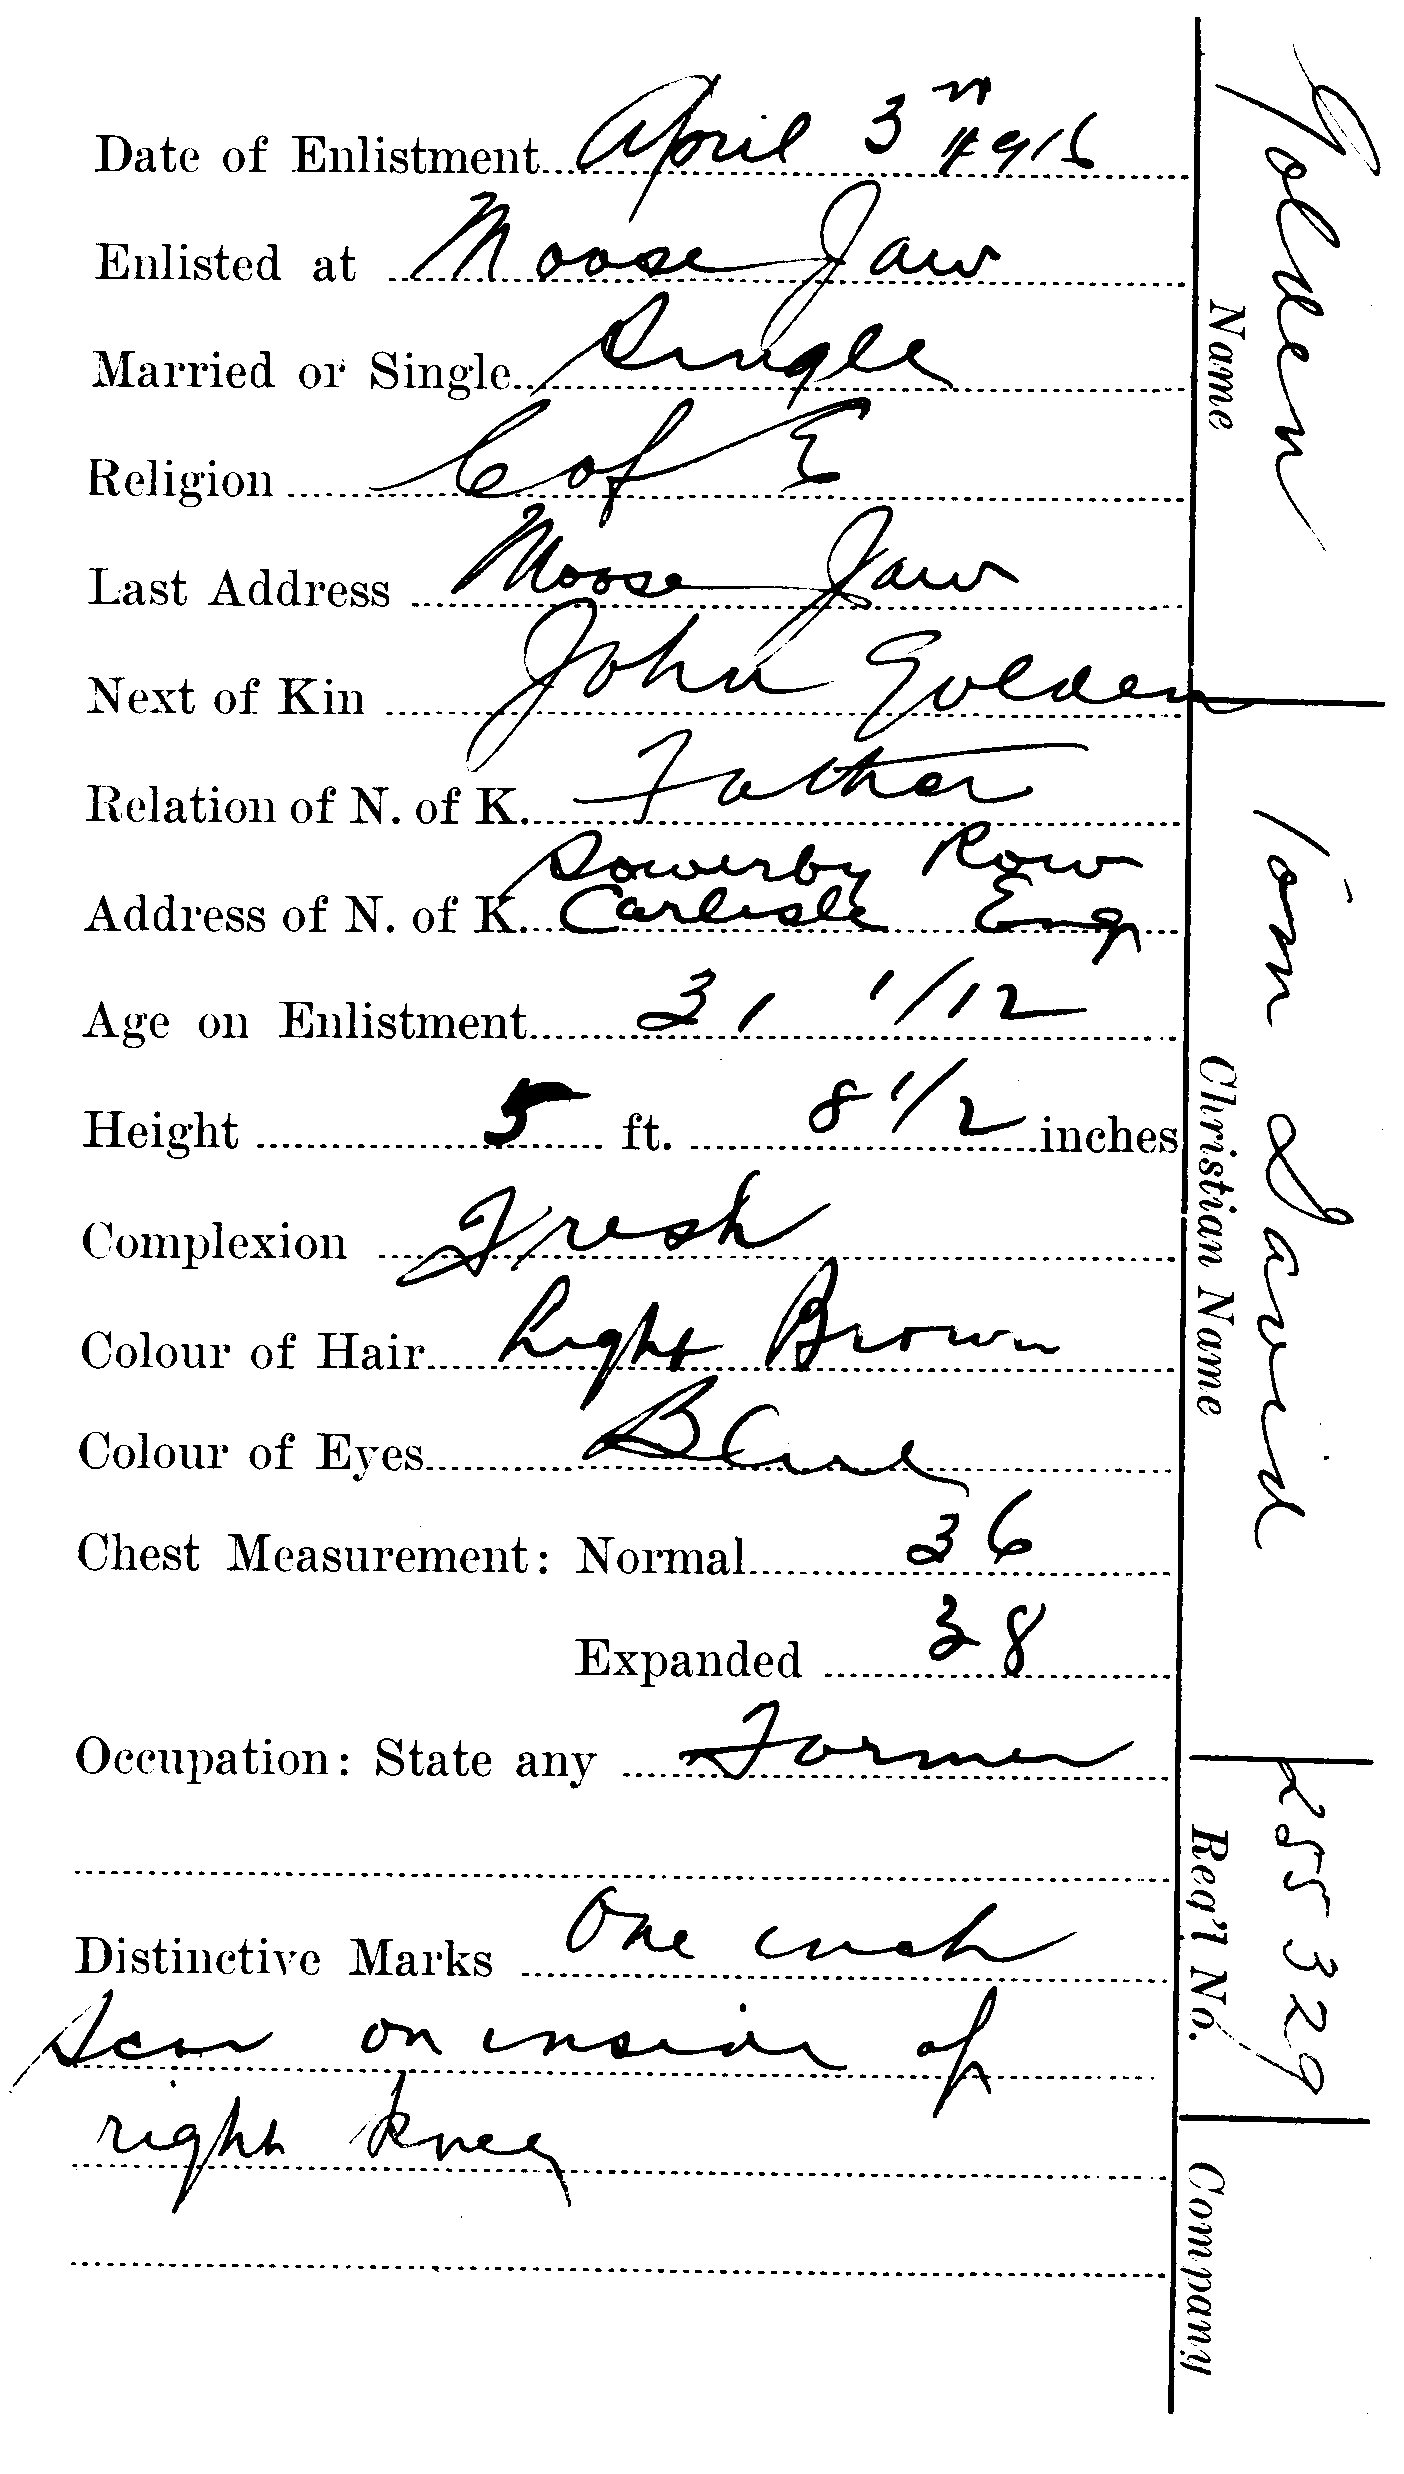 Date of Enlistment April 3rd 1916
Enlisted at Moose Jaw
Married or Single Single
Religion C of E
Last Address Moose Jaw
Next of Kin John Golden
Relation of N. of K. Father
Sowerby Row
Address of N. of K. Carlisle Eng
Age on Enlistment 31 1/12
Height 5 ft. 8 1/2 inches
Complexion Fresh
Colour of Hair Light Brown
Colour of Eyes Blue
Chest Measurement: Normal 36
Expanded 38
Occupation: State any Farmer
Distinctive Marks One inch
Scar on inside of
right knee
Golden
Name
Tom David
Christian Name
Reg'l No.
Company